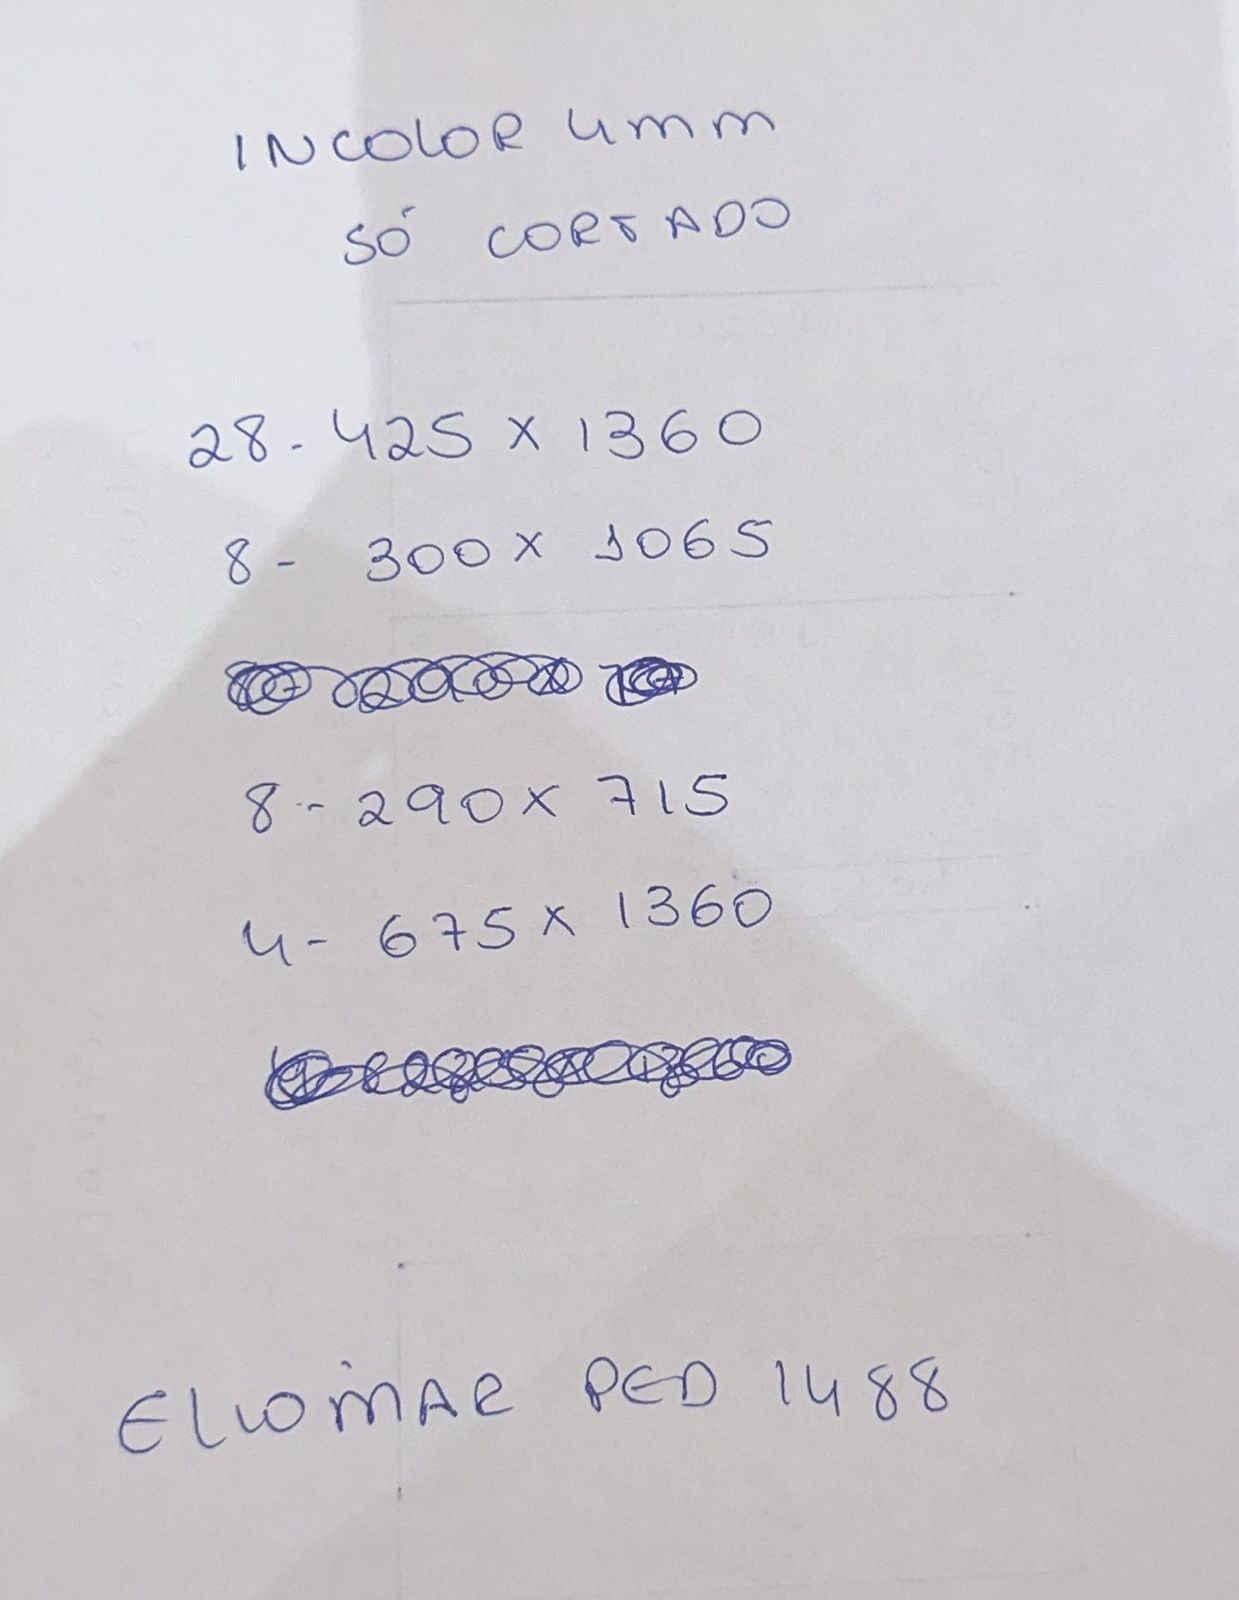 INCOLOR 4mm
SÓ CORTADO
28 - 425 x 1360
8 - 300 x 1065
8 - 290 x 715
4 - 675 x 1360
ELIOMAR PED 1488